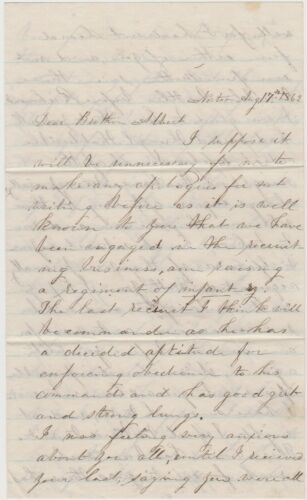 Aug 17th 1862
Dear Brother Albert
I suppose it
will be unnecessary for me to
make any apologies for not
writing before as it is well
known to you that we have
been engaged in the recruit
ing business, am raising
a regiment of infant ry
The last recruit I think will
be commander as he has
a decided aptitude for
enforcing obedience to his
commands and has good grit
and strong lungs.
I was feeling very anxious
about you all, until I received
your last, saying you were all